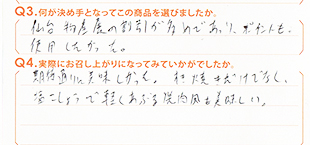 Q3.何が決め手となってこの商品を選びましたか。
仙台物産展の割引が多めであり、ポイントも、
使用したかった。
Q4.実際にお召し上がりになってみていかがでしたか。
期待通りに美味しかった。 和焼きだけでなく、
塩こしょうで軽くあぶる焼肉風も美味しい。